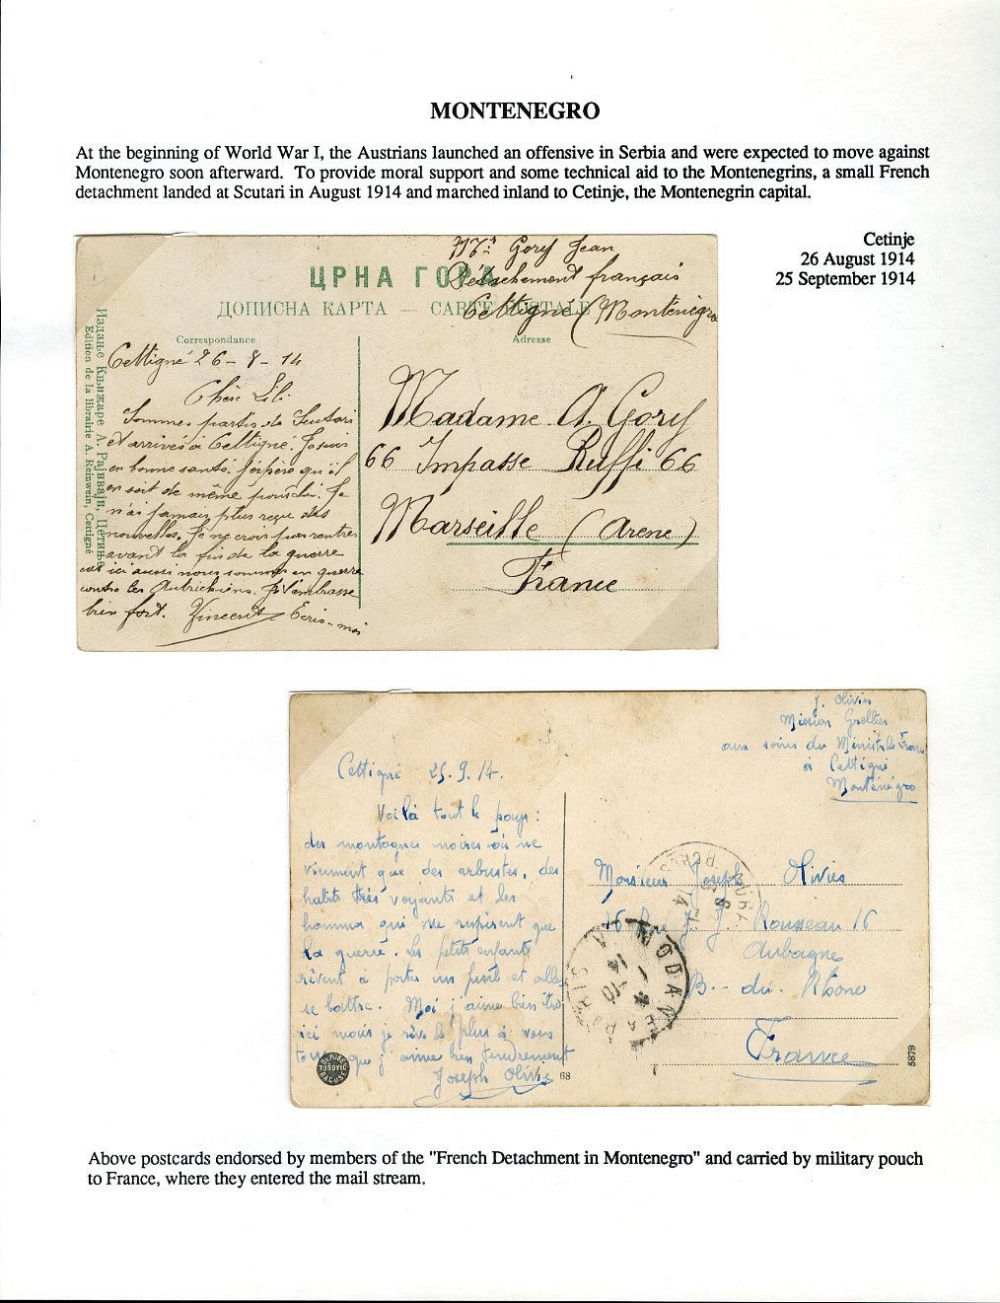 MONTENEGRO
At the beginning of World War I, the Austrians launched an offensive in Serbia and were expected to move against
Montenegro soon afterward. To provide moral support and some technical aid to the Montenegrins, a small French
detachment landed at Scutari in August 1914 and marched inland to Cetinje, the Montenegrin capital.
Cetinje
26 August 1914
25 September 1914
Gory Jean
Détachement français
Cettigné (Monténégro
ЦРНА ГОРА
ДОПИСНА КАРТА — CARTE POSTALE
Correspondance
Adresse
Издање Књижаре А. Рајнвајн, Цетиње
Edition de la librairie A. Reinwein, Cettigné
Cettigné 26-8-14
Chère Lili
Sommes partis de Scutari
et arrivés à Cettigné. Je suis
en bonne santé. J'espère qu'il
en soit de même pour toi. Je
n'ai jamais plus reçu des
nouvelles. Je ne crois pas rentrer
avant la fin de la guerre
car ici aussi nous sommes en guerre
contre les Autrichiens. Je t'embrasse
bien fort. Vincent Ecris-moi
Madame A. Gory
66 Impasse Ruffi 66
Marseille (Arenc)
France
J. Olivier
Mission Grellier
aux soins du Ministre de France
à Cettigné
Monténégro
Cettigné 25.9.14.
Voilà tout le pays:
des montagnes noires où ne
viennent que des arbustes, des
habits très voyants et les
hommes qui ne respirent que
la guerre. Les petits enfants
rêvent à porter un fusil et aller
se battre. Moi j'aime bien être
ici mais je rêve le plus à vous
tous que j'aime bien tendrement
Joseph Olivier
Monsieur Joseph Olivier
16 Rue J. J. Rousseau 16
Aubagne
B.-du-Rhône
France
MODANE
A PARIS
1-10
14
14
68
5879
Above postcards endorsed by members of the "French Detachment in Montenegro" and carried by military pouch
to France, where they entered the mail stream.